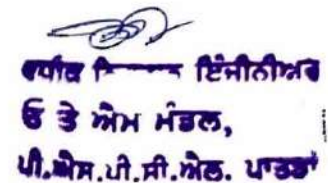 ਵਧੀਕ ਇੰਜੀਨੀਅਰ
ਓ ਤੇ ਐਮ ਮੰਡਲ,
ਪੀ.ਐਸ.ਪੀ.ਸੀ.ਐਲ. ਪਾਤੜਾਂ